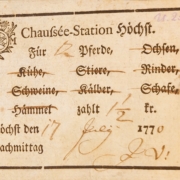 Chauſſée-Station Höchſt.
Für 12 Pferde, Ochſen,
Kühe, Stiere, Rinder,
Schweine, Kälber, Schafe,
Hämmel zahlt 1½ kr.
Höchſt den 17 July 1770
Nachmittag